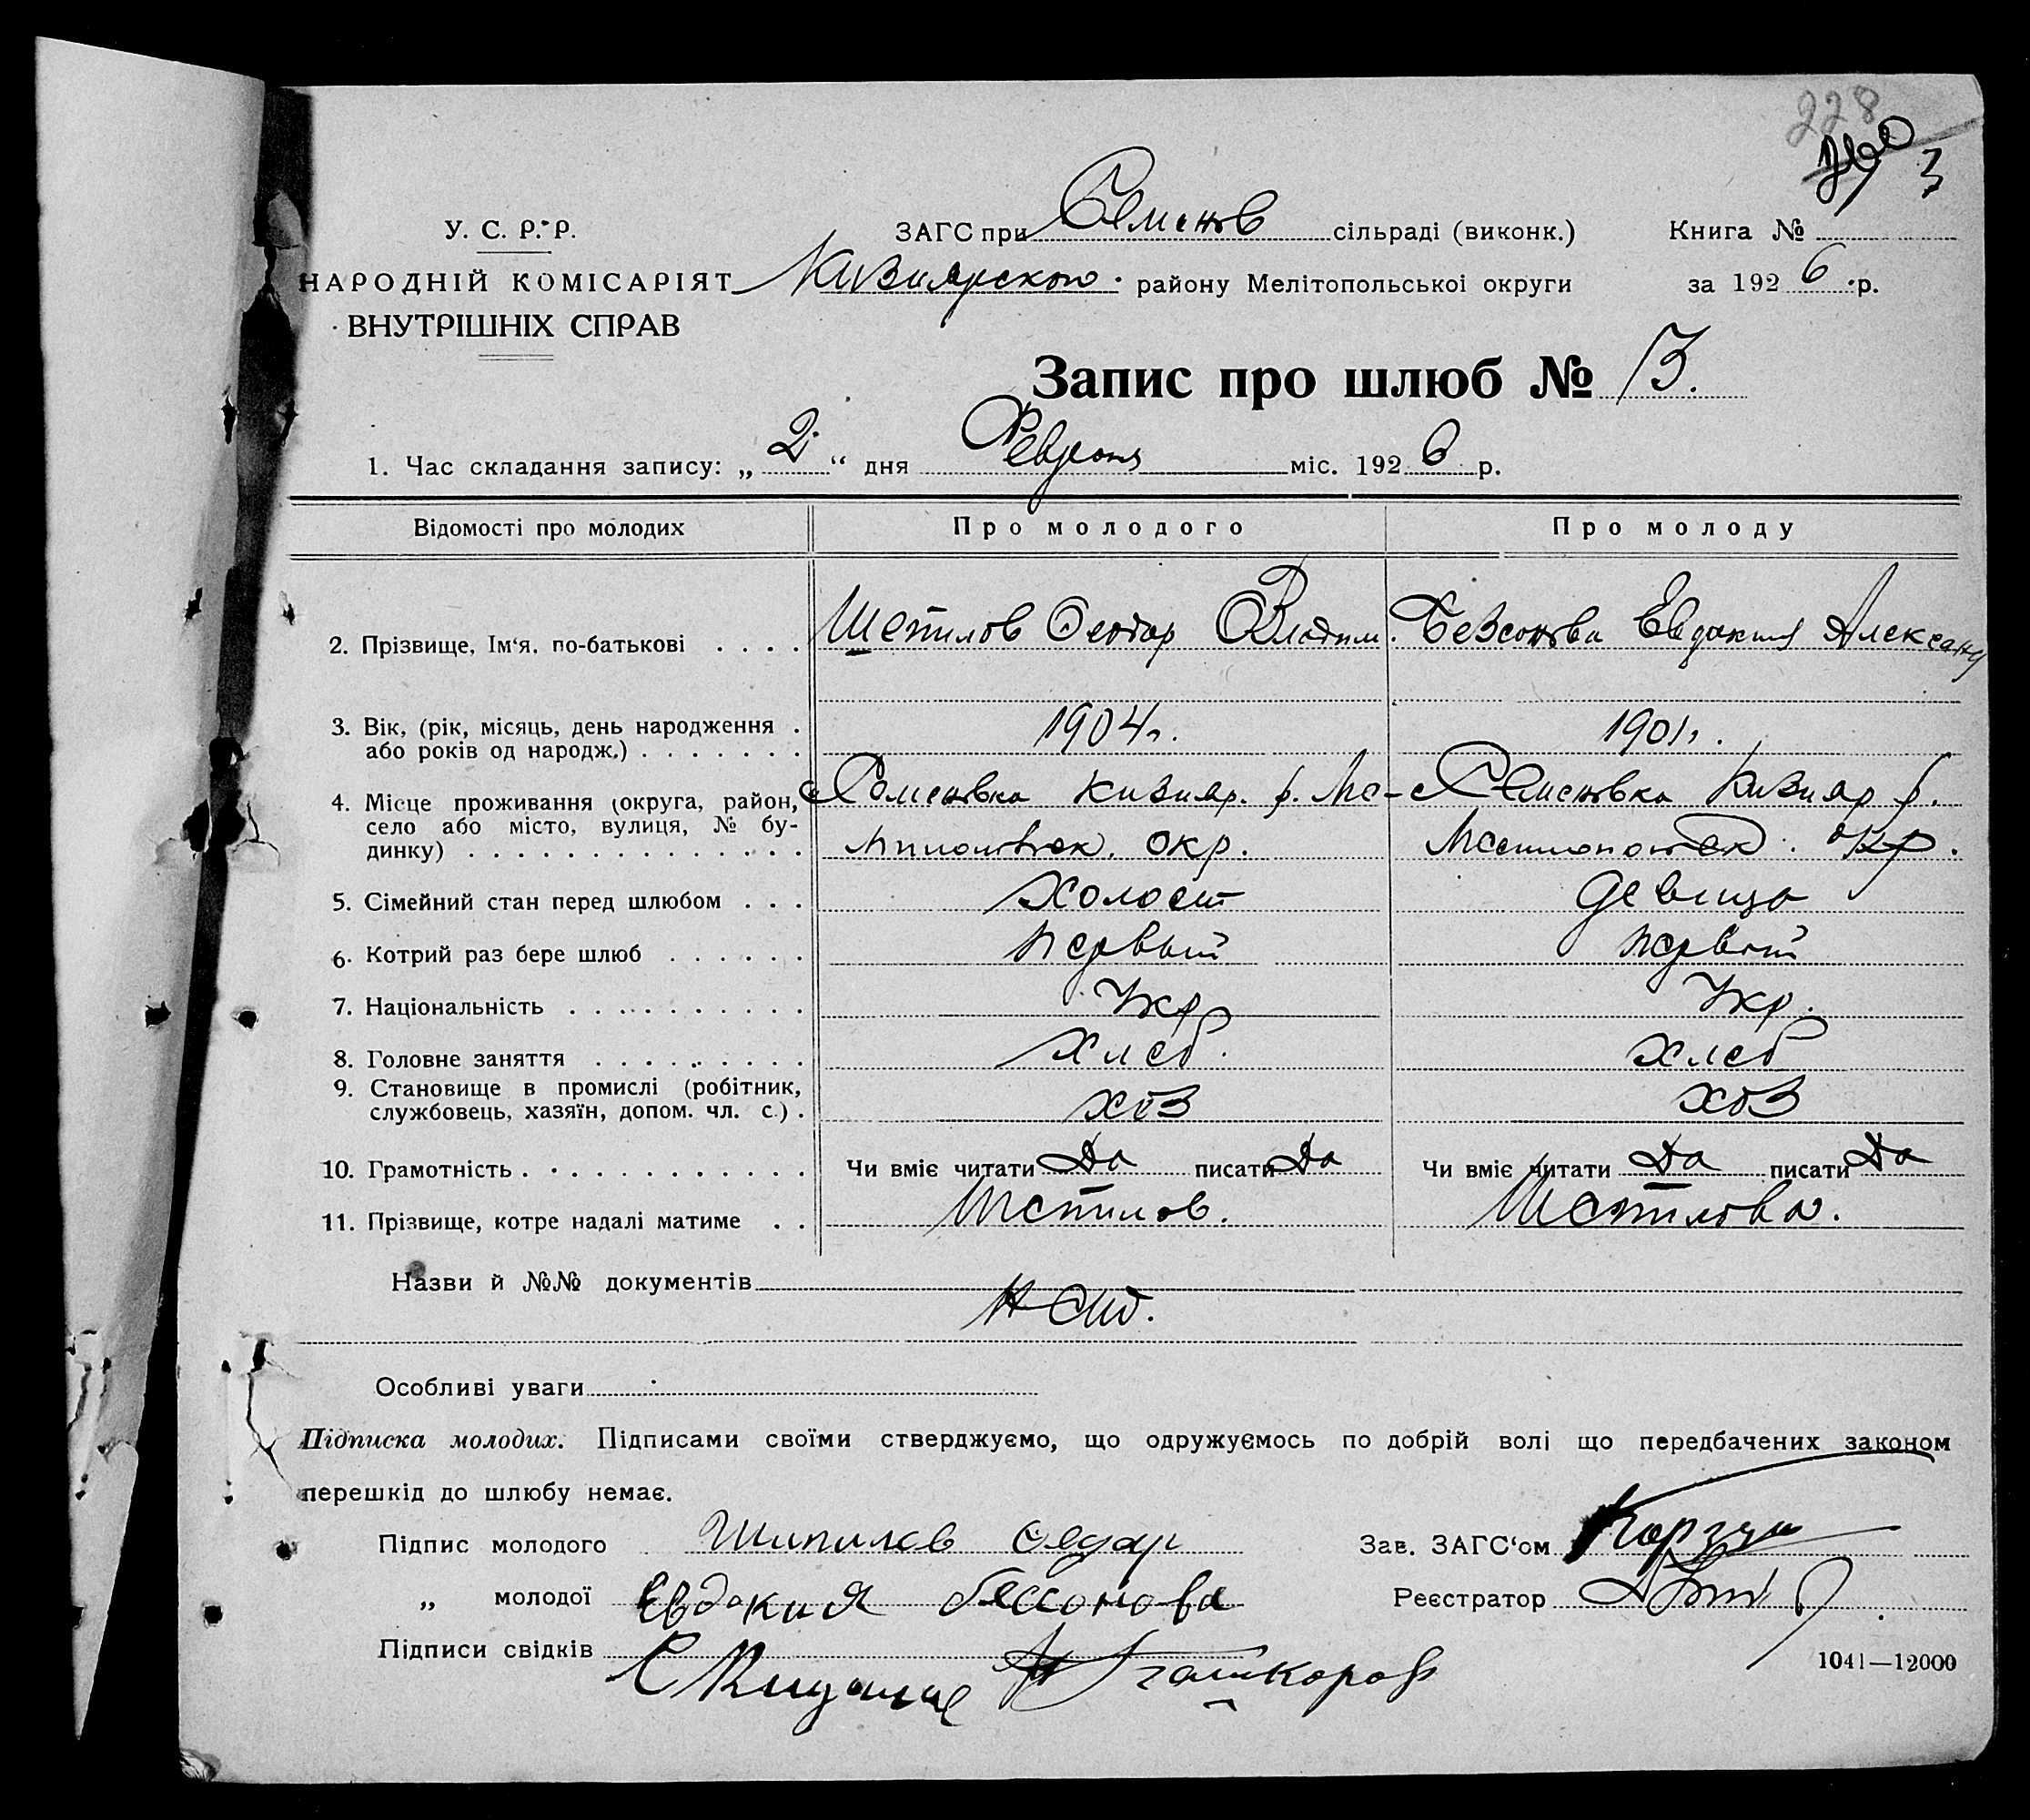 228
3
У. С. Р. Р.
ЗАГС при Семенов сільраді (виконк.) Книга №
НАРОДНІЙ КОМІСАРІЯТ Кизиярского району Мелітопольської округи за 1926 р.
ВНУТРІШНІХ СПРАВ
Запис про шлюб № 13.
1. Час складання запису: „2“ дня Февраля міс. 1926 р.
Відомості про молодих Про молодого Про молоду
2. Прізвище, Ім‘я, по-батькові Шепилов Феодор Владим. Безсонова Евдокия Александ
3. Вік, (рік, місяць, день народження 1904 г. 1901 г.
або років од народж.)
4. Місце проживання (округа, район, с Семеновка Кизияр. р. Ме- с Семеновка Кизияр р.
село або місто, вулиця, № бу-
динку) литопольск. окр. Мелитопольск. окр.
5. Сімейний стан перед шлюбом Холост девица
6. Котрий раз бере шлюб первый первый
7. Національність Укр. Укр.
8. Головне заняття хлеб. хлеб
9. Становище в промислі (робітник, хоз хоз
службовець, хазяїн, допом. чл. с.)
10. Грамотність Чи вміє читати Да писати Да Чи вміє читати Да писати Да
11. Прізвище, котре надалі матиме Шепилов. Шепилова.
Назви й №№ документів
Особливі уваги
Підписка молодих. Підписами своїми стверджуємо, що одружуємось по добрій волі що передбачених законом
перешкід до шлюбу немає.
Підпис молодого Шипилов Федар Зав. ЗАГС‘ом
„ молодої Евдокия бессонова Реєстратор
Підписи свідків
1041—12000